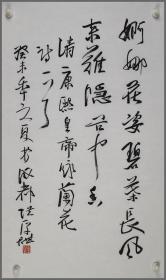 婀娜花姿碧叶长风
来难隐谷中香
清康熙皇帝咏兰花
诗一首
癸未年立夏于成都